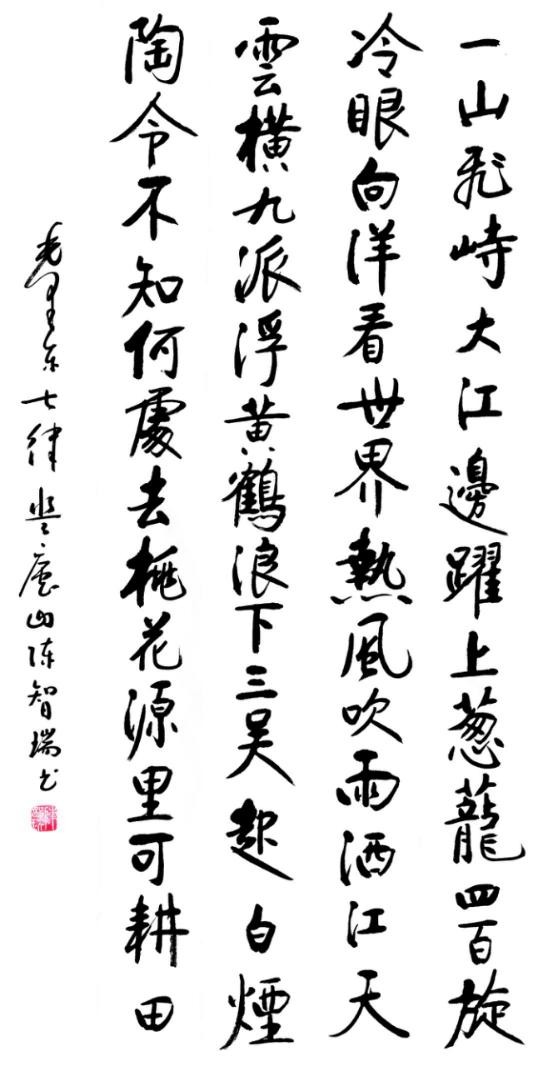 一山飛峙大江邊躍上葱蘢四百旋
冷眼向洋看世界熱風吹雨洒江天
雲橫九派浮黃鶴浪下三吴起白煙
陶令不知何處去桃花源里可耕田
毛澤东七律登廬山陈智瑞书